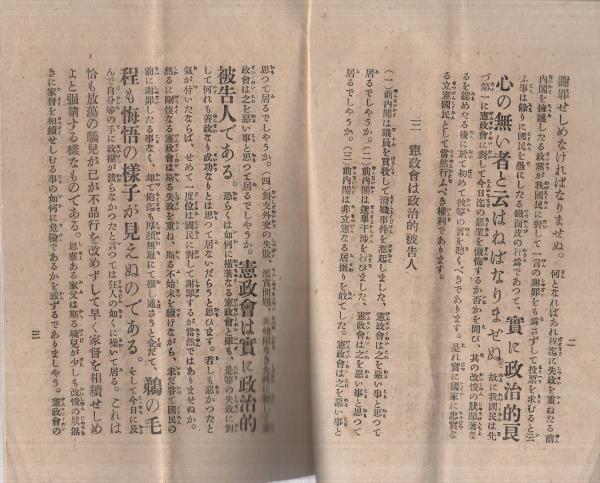 二
謝罪せしめなければなりませぬ。何となればあれ程迄に失政を重ねたる前
内閣を擁護したる政黨が我國民に對して一言の謝罪をも爲さずして投票を求むると云
ふ事は餘りに國民を愚にしたる鐵面皮の行爲であつて、實に政治的良
心の無い者と云はねばなりませぬ。故に我國民は先
づ第一に憲政會に對して今日迄の惡業を懺悔するか否かを問ひ、其の改悛の狀顯著な
るを認めたる後に於て初めて彼等の言を聽くべきであります。是れ實に國家に忠實な
る立憲國民として當然行ふべき權利であります。
三 憲政會は政治的被告人
(一)前內閣は議員を買收して瀆職事件を惹起しました、憲政會は之を惡い事と思つて
居るでしやうか。(二)前內閣は選擧干涉を行ひました、憲政會は之を惡い事と思つて
居るでしやうか。(三)前內閣は非立憲なる居据りを敢てした。憲政會は之を惡い事と
思つて居るでしやうか。(四)對支外交の失敗、
政會は之を惡い事と思つて居るでしやうか。憲政會は實に政治的
被告人である。恐らくは如何に橫著なる憲政會と雖も、是等の失政に對
して何れも善政なり成功なりとは思つて居ないだらうと思ひます。若しも惡かつたと
氣が付いたならば、せめて一度位は國民に對して謝罪するが當然ではありませぬか。
然るに剛愎なる憲政會は斯る失政を重ね、斯る不始末を續けながら、未だ嘗て國民の
前に謝罪したる事なく、却て飽迄も厚顏無耻にて推し通さうと企だて、鵜の毛
程も悔悟の樣子が見えぬのである。そして今日に及
んで自分等の手に政權が轉らなかつたと言つては狂人の如くに騷いで居る。これは
恰も放蕩の驕兒が己が不品行を改めずして早く家督を相續せしめ
よと强請する樣なものである。思慮ある家父は斯る驕兒が少しも改悛の狀無
きに家督を相續せしむる事の如何に危險であるかを感ずるでありましやう。憲政會の
三